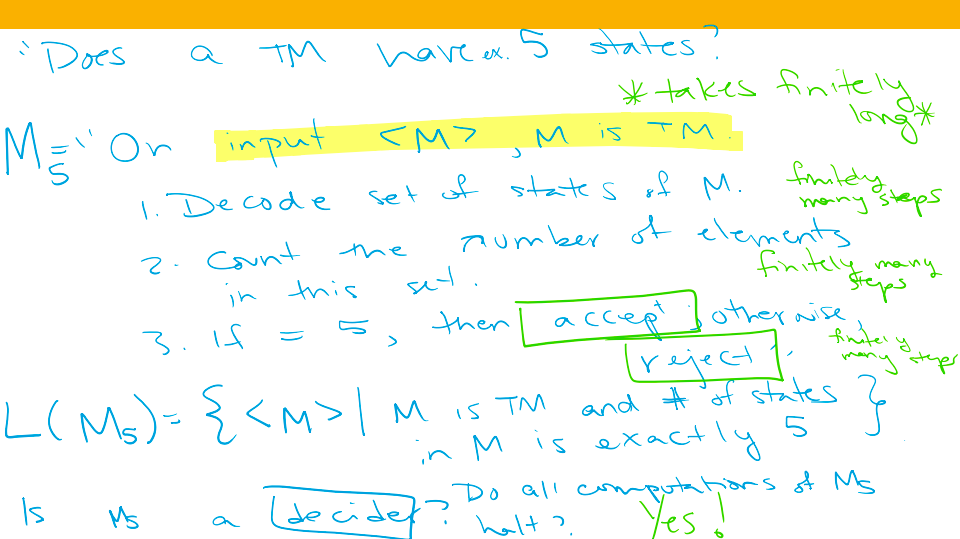 "Does a TM have ex. 5 states?
* takes finitely
long *
M₅ = "On input <M>, M is TM.
1. Decode set of states of M.
finitely
many steps
2. Count the number of elements
in this set.
finitely many
steps
3. If = 5, then accept; otherwise,
reject.
finitely
many steps
L(M₅) = {<M> | M is TM and # of states
in M is exactly 5}
Is M₅ a decider? Do all computations of M₅
halt? Yes!